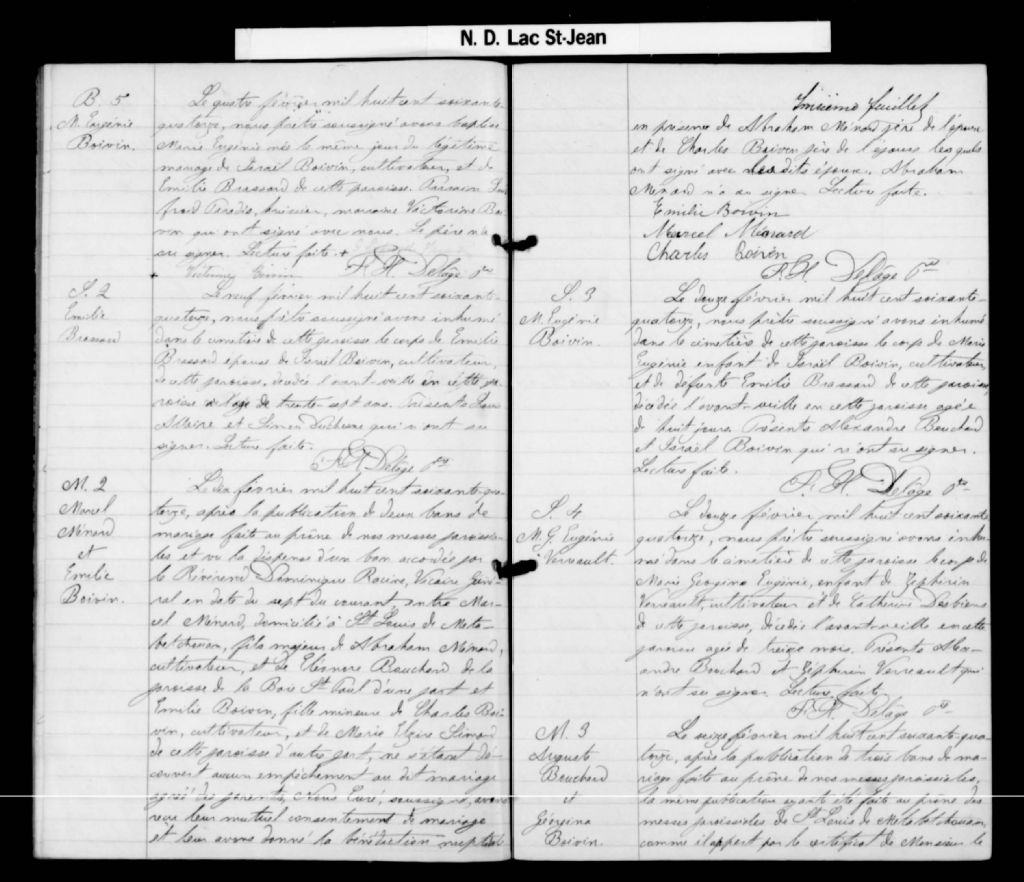 N. D. Lac St-Jean
B. 5
M. Eugénie
Boivin.
Le quatre février mil huit cent soixante-
quatorze, nous prêtre soussigné avons baptisé
Marie Eugénie née le même jour du légitime
mariage de Israël Boivin, cultivateur, et de
Emilie Brassard de cette paroisse. Parrain
Paradis, marraine Victorine Boi-
vin qui ont signé avec nous. Le père n'a
su signer. Lecture faite. +
+ Victorine Boivin F. H. Delage Ptre
S. 2
Emilie
Brassard
Le neuf février mil huit cent soixante-
quatorze, nous prêtre soussigné avons inhumé
dans le cimetière de cette paroisse le corps de Emilie
Brassard épouse de Israël Boivin, cultivateur,
de cette paroisse, décédée l'avant-veille en cette pa-
roisse à l'âge de trente-sept ans. Présents
Allaire et Simon Duchesne qui n'ont su
signer. Lecture faite.
F. H. Delage Ptre
M. 2
Marcel
Ménard
et
Emilie
Boivin.
Le dix février mil huit cent soixante-qua-
torze, après la publication de deux bans de
mariage faite au prône de nos messes paroissia-
les et vu la dispense d'un ban accordée par
le Révérend Dominique Racine, Vicaire Géné-
ral en date du sept du courant entre Mar-
cel Ménard, domicilié à St Louis de Meta-
betchouan, fils majeur de Abraham Ménard,
cultivateur, et de Eléonore Bouchard de la
paroisse de la Baie St Paul d'une part et
Emilie Boivin, fille mineure de Charles Boi-
vin, cultivateur, et de Marie Elzire Simard
de cette paroisse d'autre part, ne s'étant dé-
couvert aucun empêchement au dit mariage
des parents, Nous Curé, soussigné, avons
reçu leur mutuel consentement de mariage
et leur avons donné la bénédiction nuptiale
feuillet
en présence de Abraham Ménard père de l'époux
et de Charles Boivin père de l'épouse lesquels
ont signé avec les dits époux. Abraham
Ménard n'a su signer. Lecture faite.
Emilie Boivin
Marcel Ménard
Charles Boivin
F. H. Delage Ptre
S. 3
M. Eugénie
Boivin.
Le douze février mil huit cent soixante-
quatorze, nous prêtre soussigné avons inhumé
dans le cimetière de cette paroisse le corps de Marie
Eugénie enfant de Israël Boivin, cultivateur,
et de défunte Emilie Brassard de cette paroisse,
décédée l'avant-veille en cette paroisse agée
de huit jours. Présents Alexandre Bouchard
et Israël Boivin qui n'ont su signer.
Lecture faite.
F. H. Delage Ptre
S. 4
M. G. Eugénie
Verreault.
Le douze février mil huit cent soixante
quatorze, nous prêtre soussigné avons inhu-
mé dans le cimetière de cette paroisse le corps de
Marie Georgina Eugénie, enfant de Zéphirin
Verreault, cultivateur et de Catherine Desbiens
de cette paroisse, décédée l'avant-veille en cette
paroisse agée de treize mois. Présents Alex-
andre Bouchard et Zéphirin Verreault qui
n'ont su signer. Lecture faite.
F. H. Delage Ptre
M. 3
Auguste
Bouchard
et
Géorgina
Boivin.
Le seize février mil huit cent soixante-qua-
torze, après la publication de trois bans de ma-
riage faite au prône de nos messes paroissiales,
la même publication ayant été faite au prône des
messes paroissiales de St Louis de Metabetchouan,
comme il appert par le certificat de Monsieur le